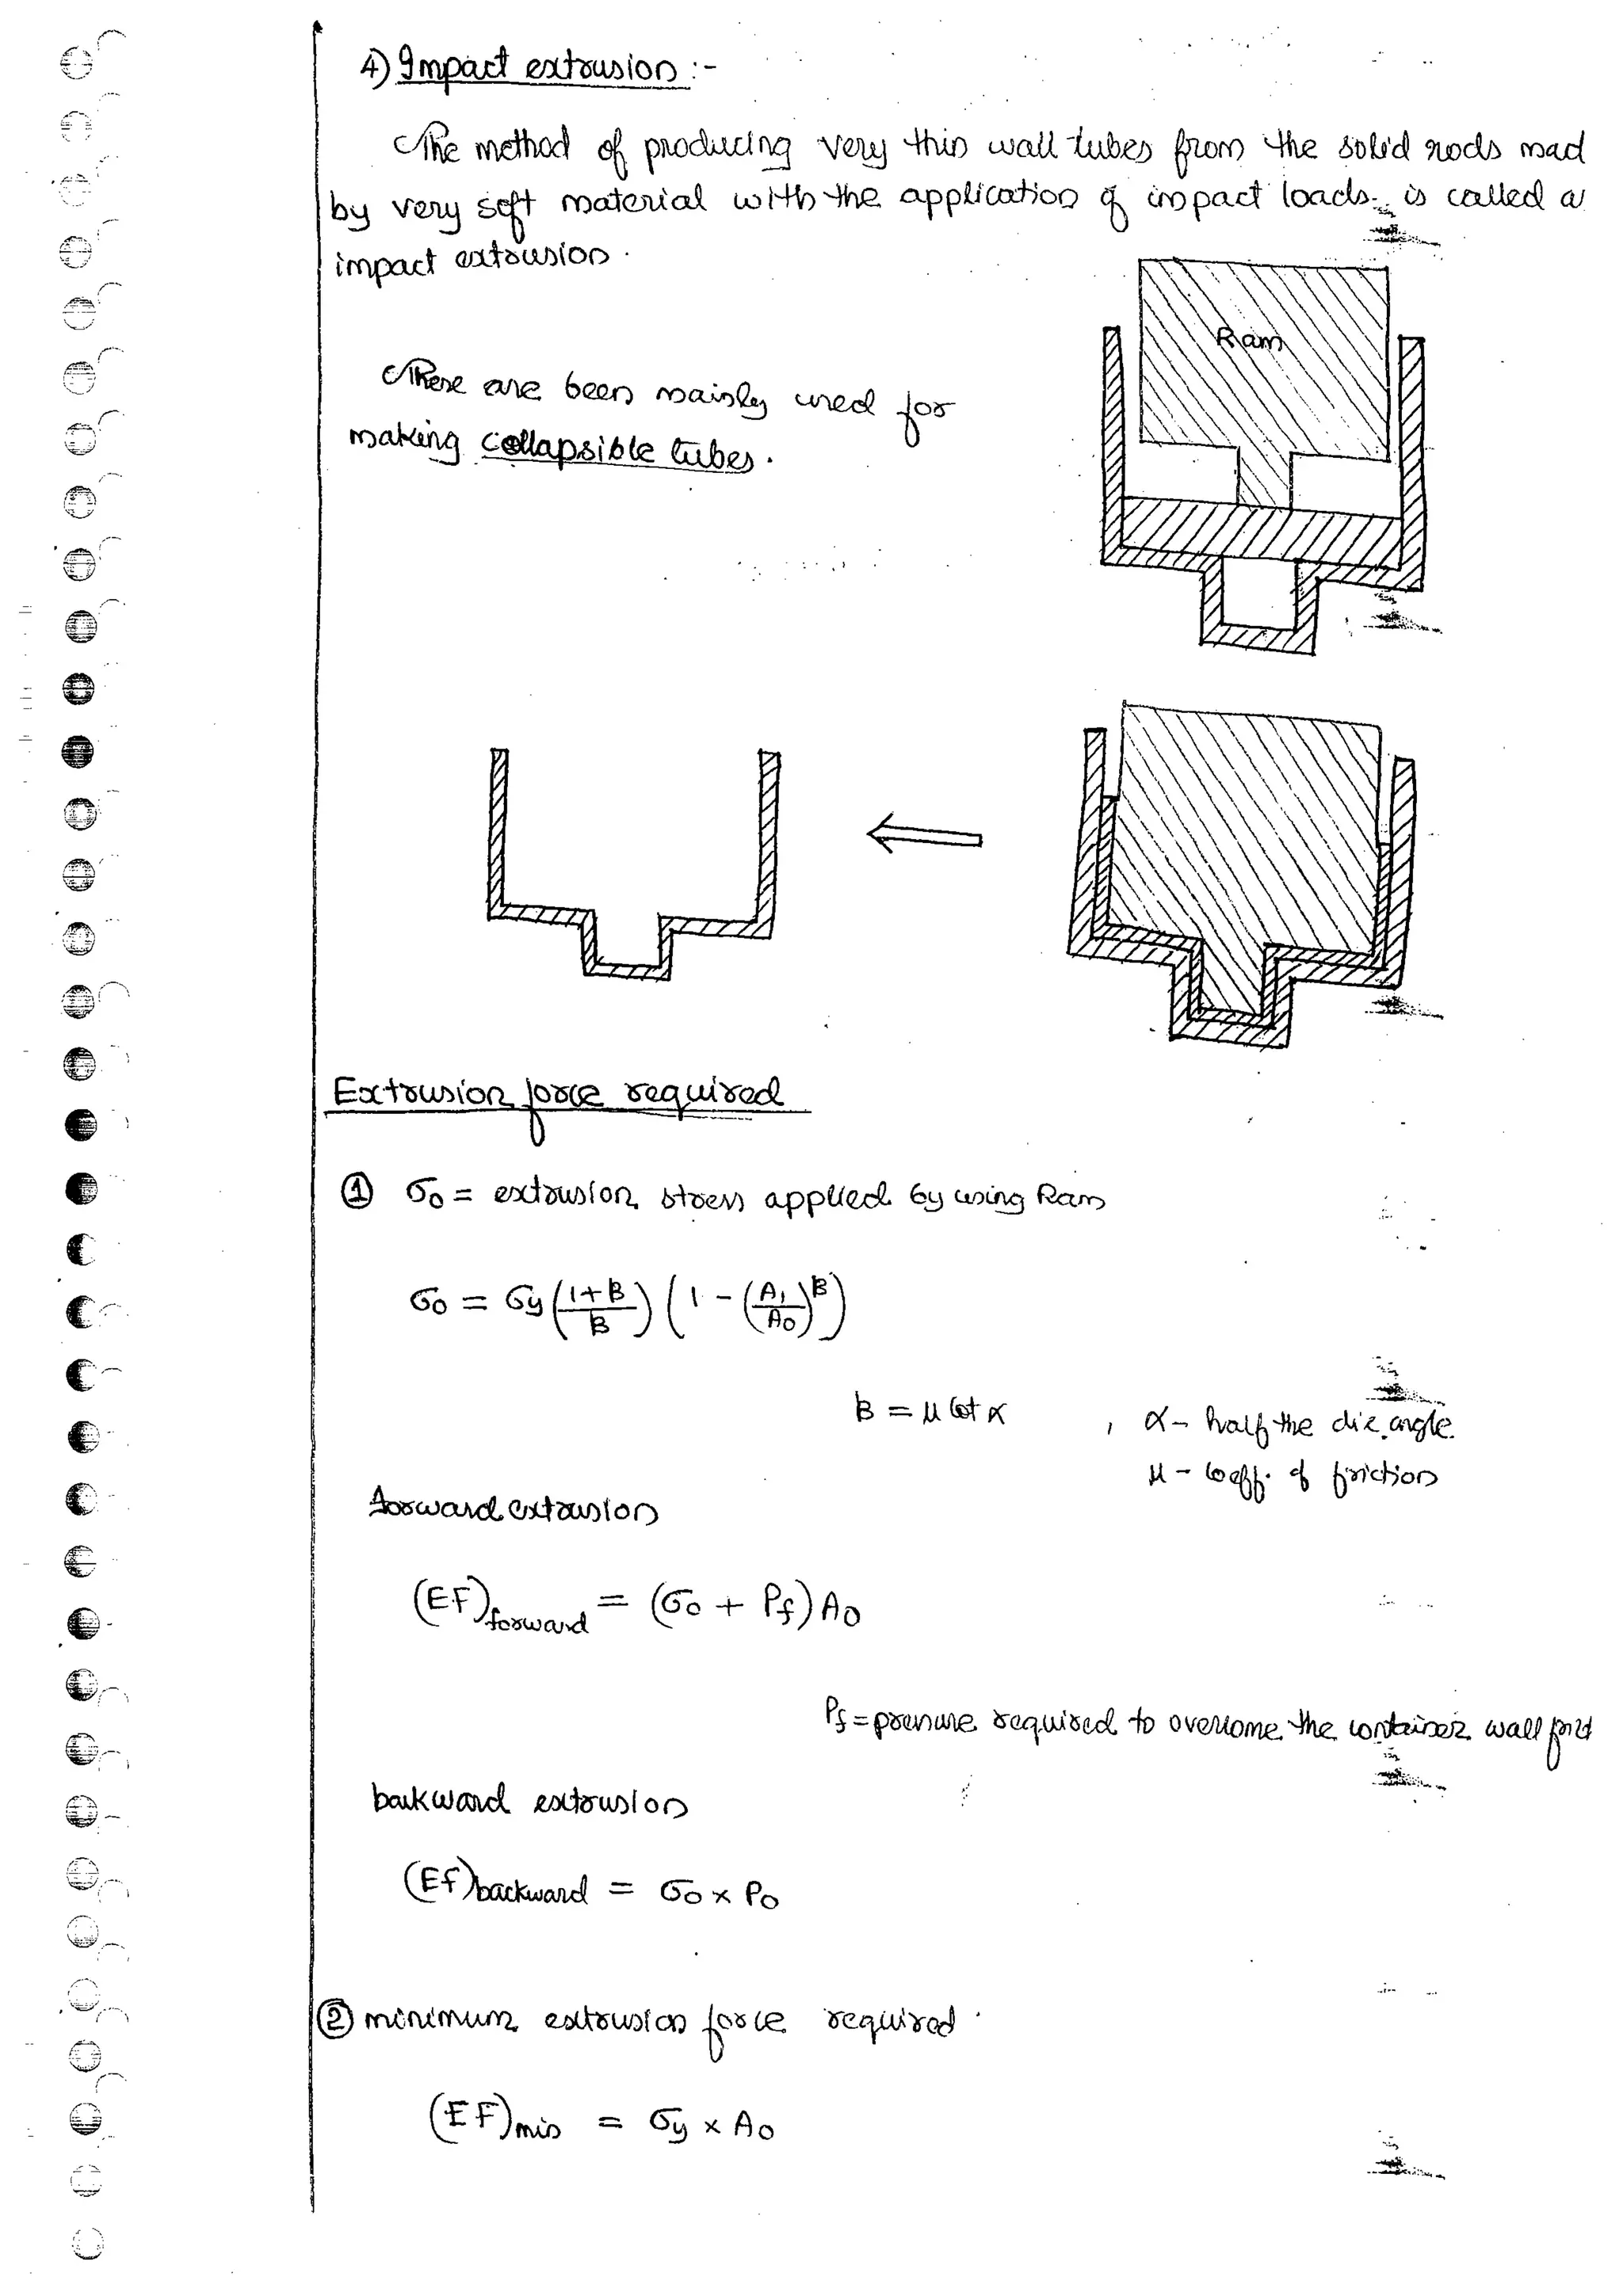 4) Impact extrusion :-
The method of producing very thin wall tubes from the solid rods mad
by very soft material with the application of impact loads is called a
impact extrusion.
Ram
These are been mainly used for
making collapsible tubes.
Extrusion force required
① σ₀ = extrusion stress applied by using Ram
σ₀ = σy ((1+B)/B) (1 - (A₁/A₀)^B)
B = μ cot α , α - half the die angle.
μ - coeff. of friction
forward extrusion
(EF)forward = (σ₀ + Pf) A₀
Pf = pressure required to overcome the container wall
backward extrusion
(Ef)backward = σ₀ × P₀
② minimum extrusion force required.
(EF)min = σy × A₀